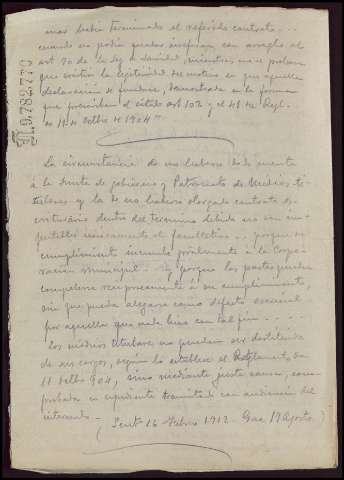 mas había terminado el referido contrato...
cuando no podía quedar ineficaz, con arreglo al
art 70 de la ley de Sanidad, mientras no se probara
que existía la legitimidad del motivo en que aquella
declaración se fundara, demostrada en la forma
que prescriben el citado art 102 y el 41 de Regl.
de 11 de octbre de 1904"
La circunstancia de no haberse dado cuenta
á la Junta de gobierno y Patronato de Médicos ti-
tulares y la de no haberse otorgado contrato es-
criturario dentro del termino debido no son im-
putables unicamente al facultativo... porque su
cumplimiento incumbe igualmente á la Corpo-
ración municipal - y porque las partes pueden
compelerse reciprocamente á su cumplimiento,
sin que pueda alegarse como defecto esencial
por aquella que nada hizo con tal fin - - - -
los médicos titulares no pueden ser destituidos
de sus cargos, según lo establece el Reglamento de
11 octbre 904, sino mediante justa causa, com-
probada en expediente tramitado con audiencia del
interesado -
( Sent 16 Febrero 1912 - Gac 17 Agosto )
N.9.782.770